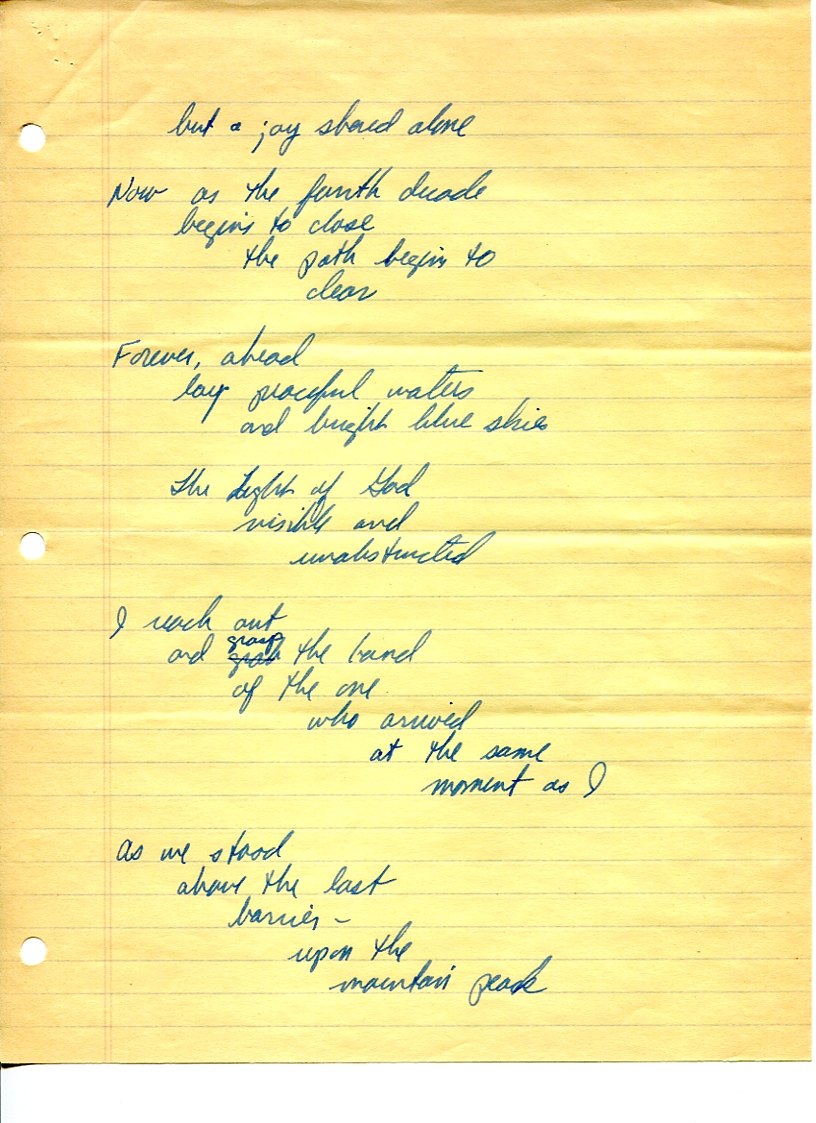 but a joy shared alone
Now as the fourth decade
begins to close
the path begins to
clear
Forever, ahead
lay peaceful waters
and bright blue skies
The Light of God
visible and
unobstructed
I reach out
grasp
and grab the hand
of the one
who arrived
at the same
moment as I
As we stood
above the last
barrier –
upon the
mountain peak